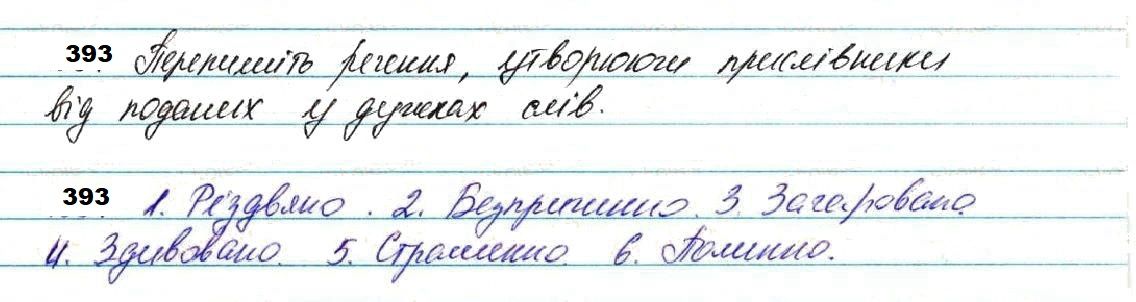 393 Перепишіть речення, утворюючи прислівники
від поданих у дужках слів.
393 1. Різдвяно. 2. Безпричинно. 3. Зачаровано.
4. Здивовано. 5. Страшенно. 6. Полинно.